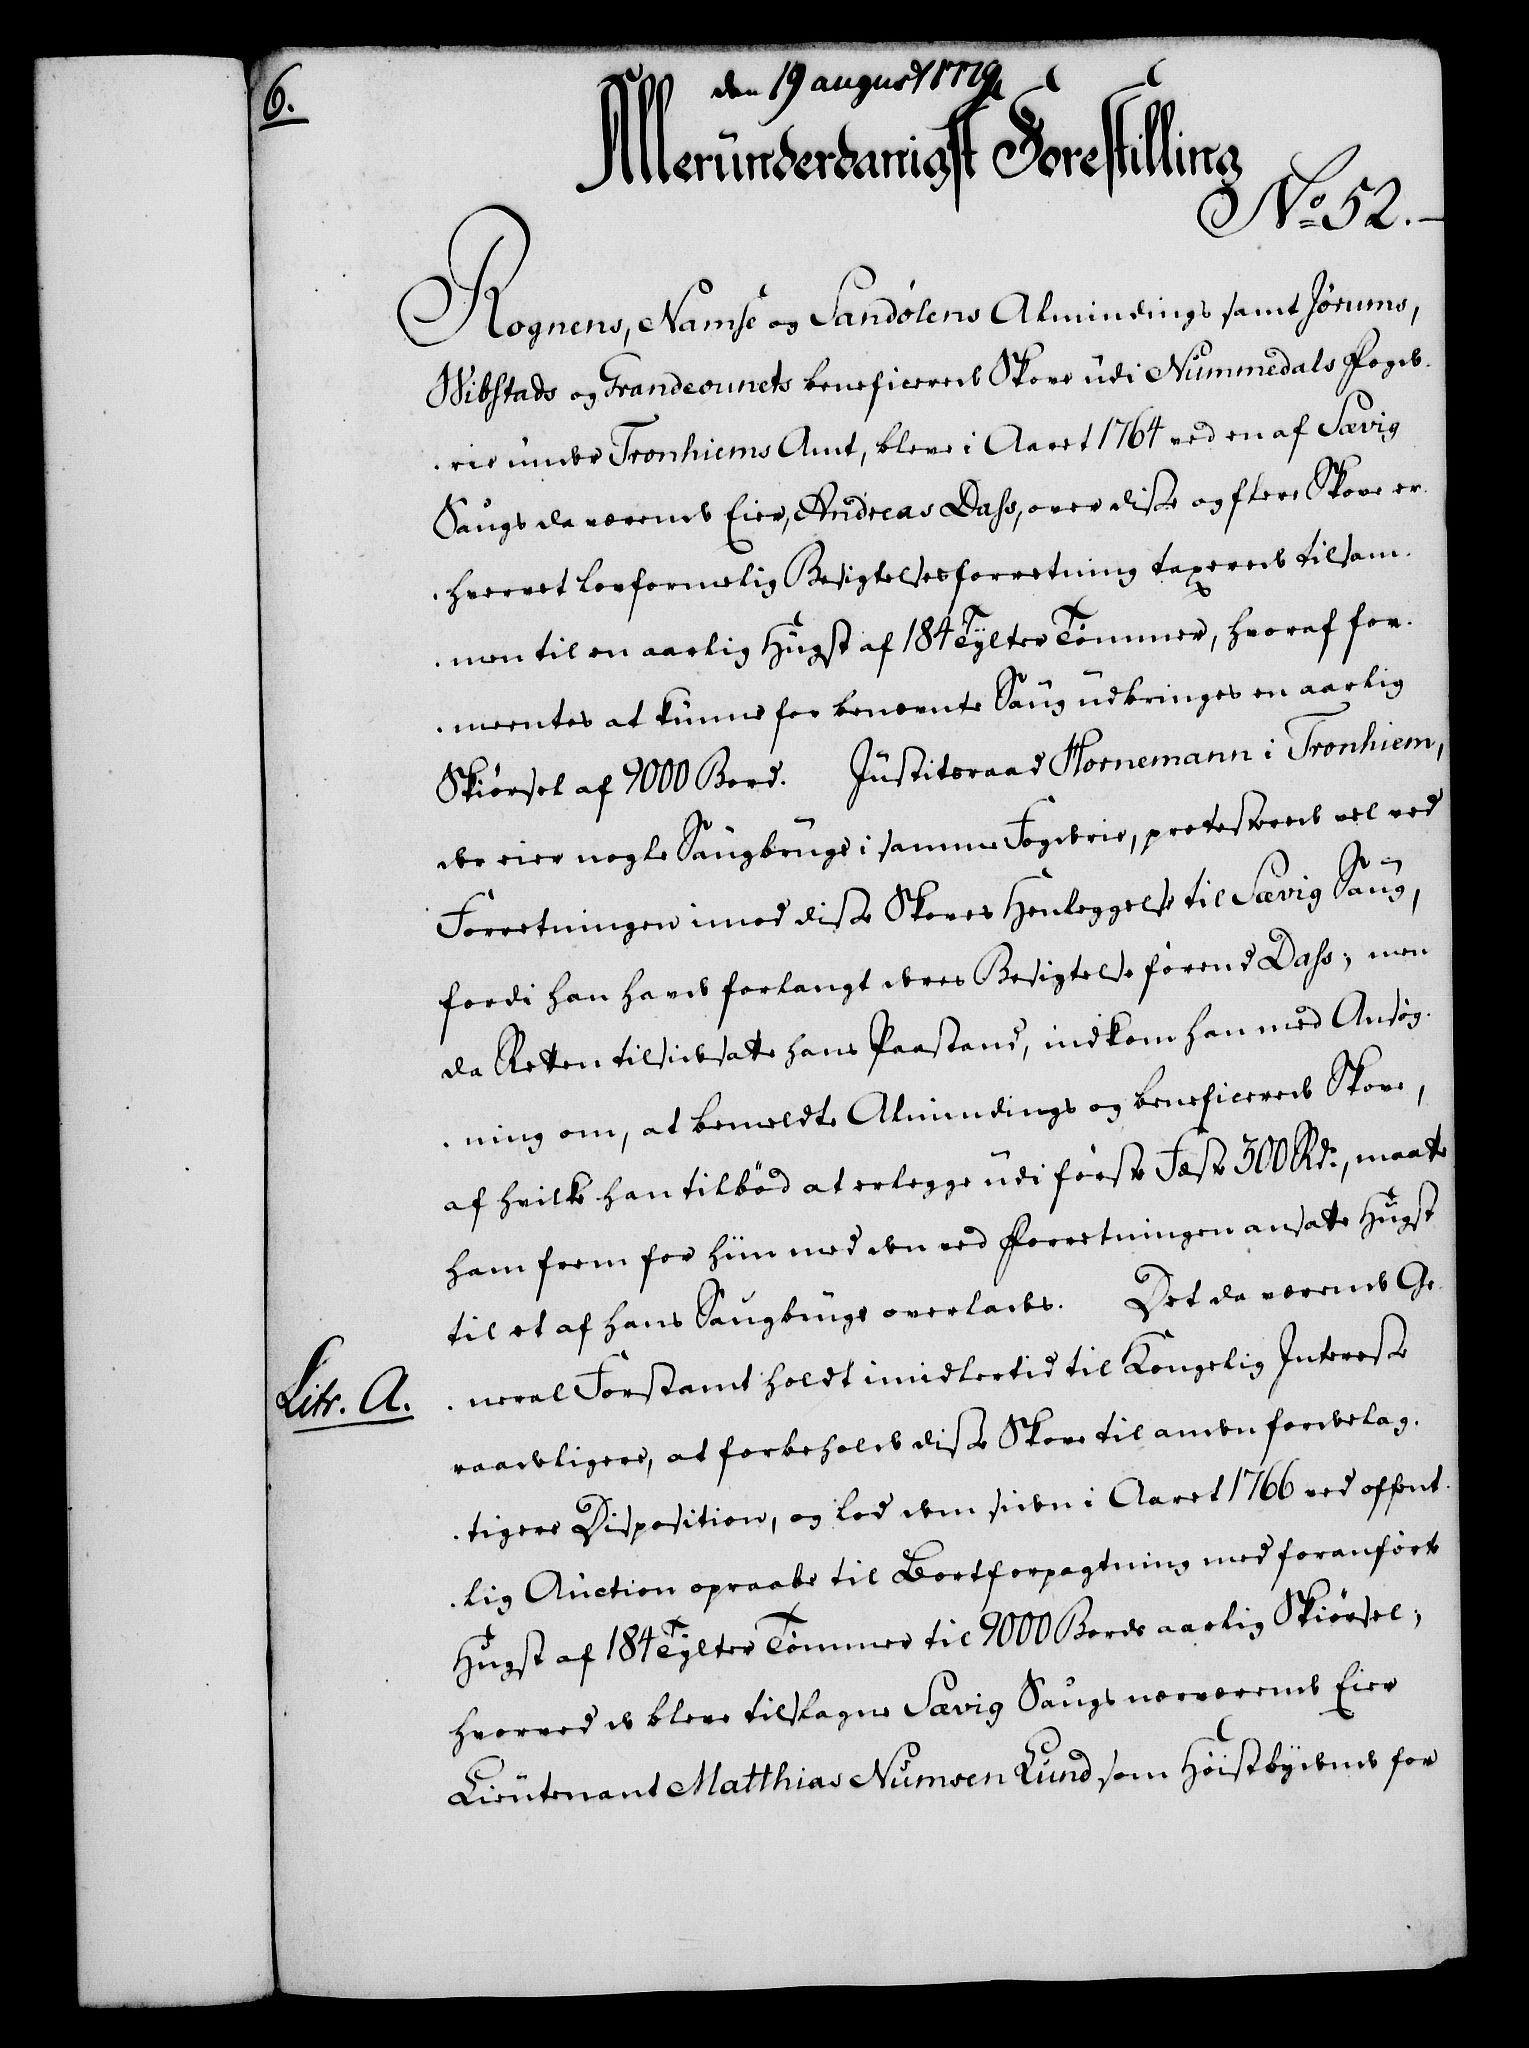 6.
den 19 august 1779
Alleründerdanigst Forestilling
No 52.
Rognens, Namse og Sandölens Alminding samt Jörums,
Wibstads og Grandeounets beneficerede Skove üdi Nummedals Foged-
rie ünder Tronhiems Amt, bleve i Aaret 1764 ved en af Sævig
Saugs da værende Eier, Andreas Dass, over disse og flere Skove er-
hvervet lovformelig Besigtelsesforretning taxerede tilsam-
men til en aarlig Hügst af 184 Tylter Tömmer, hvoraf for-
meentes at künne for benævnte Saug üdbringes en aarlig
Skiörsel af 9000 Bord. Jüstitsraad Hornemann i Tronhiem,
der eier nogle Saugbrüge i samme Fogderie, protesterede vel ved
Forretningen imod disse Skoves Henleggelse til Sævig Saug,
fordi han havde forlangt deres Besigtelse förend Dass; men
da Retten tilsidesatte hans Paastand, indkom han med Ansög-
ning om, at bemeldte Alminding og beneficerede Skove,
af hvilke han tilböd at erlegge üdi förste Fæste 300 Rdr., maatte
ham frem for hiin med den ved Forretningen ansatte Hügst
til et af hans Saugbrüge overlades. Det da værende Ge-
Litr. A.
neral Forstamt holdt imidlertid til Kongelig Interesse
raadeligere, at forbeholde disse Skove til anden fordelag-
tigere Disposition, og lod dem siden i Aaret 1766 ved offent-
lig Auction opraabe til Bortforpagtning med foranförte
Hügst af 184 Tylter Tömmer til 9000 Bords aarlig Skiörsel;
hvorved de bleve tilslagne Sævig Saugs nærværende Eier
Lieutenant Matthias Numsen Lund som Höistbydende for